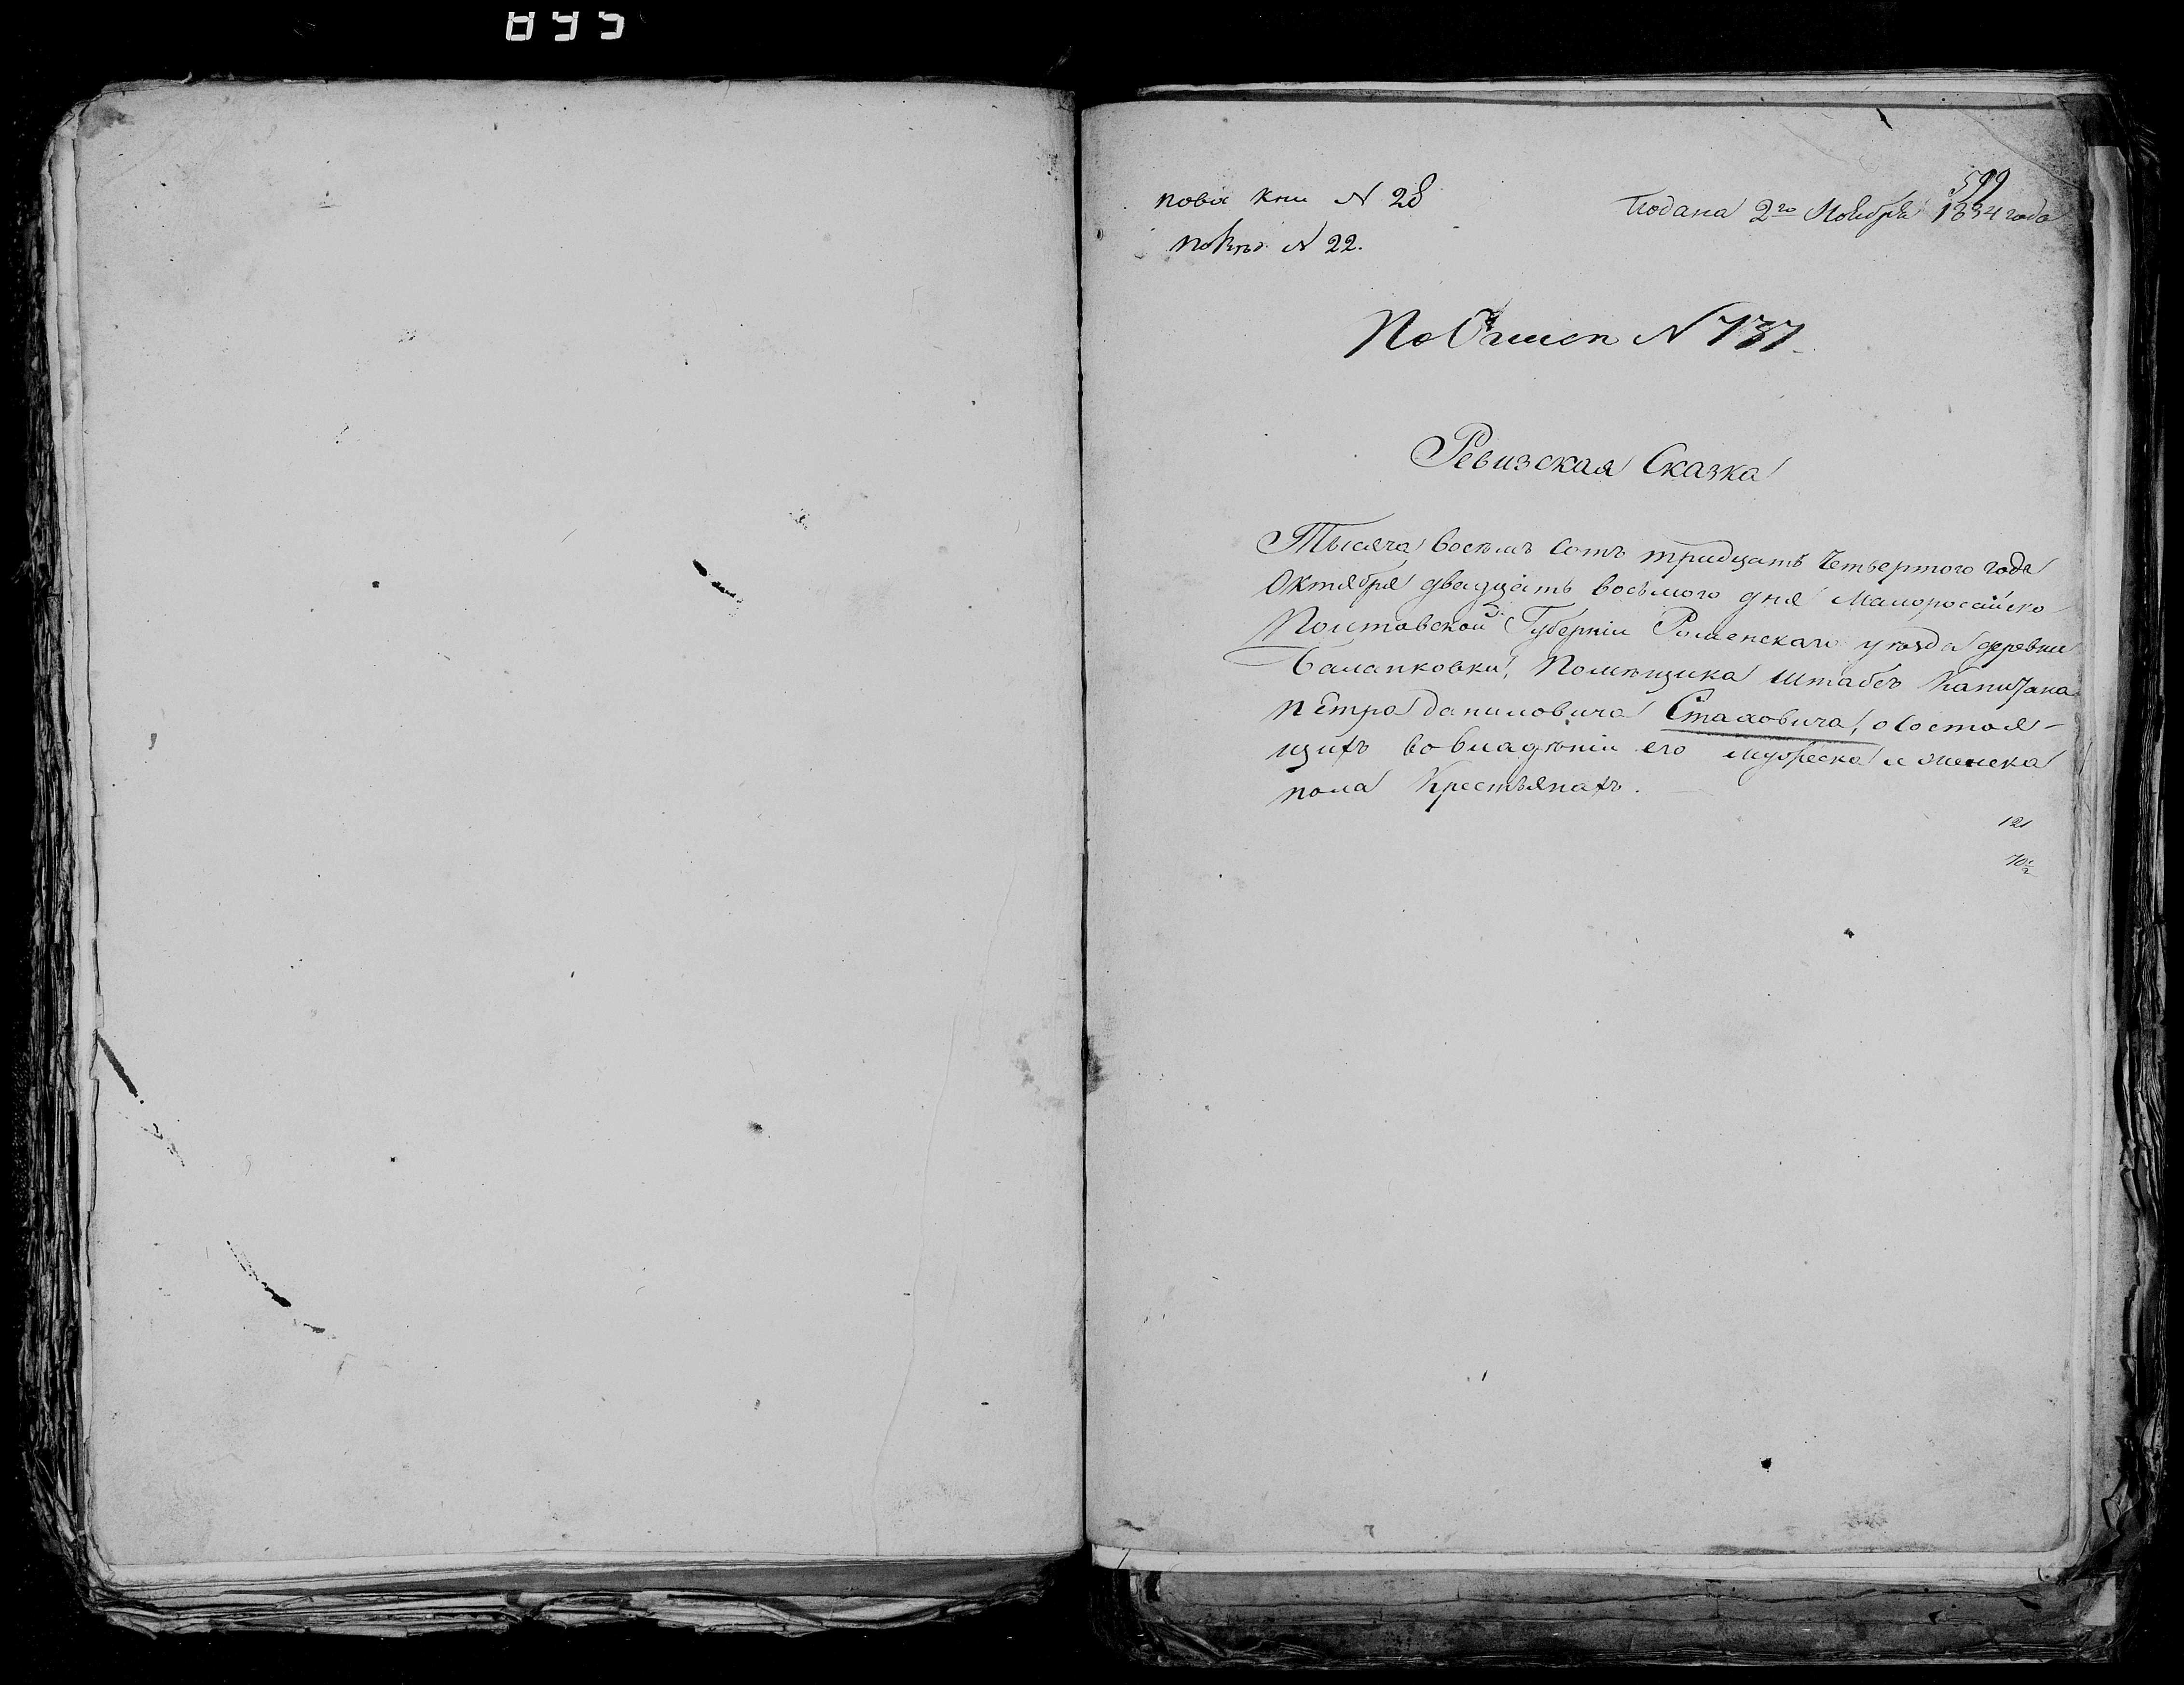 599
Подана 2го Ноября 1834 года
N 28
N 22.
По Описи N 737
Ревизская Сказка
Тысяча восемь сотъ тридцать четвертого года
Октября двадцать восьмого дня Малоросійско
Полтавской Губерніи Роменскаго уѣзда деревни
Помѣщика штабсъ Капитана
Петра Даниловича Стаховича, о состоя-
щихъ во владѣніи его мужеска и женска
пола Крестьянахъ.
121